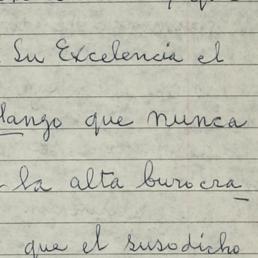 Su Excelencia el
lango que nunca
la alta burocra_
que el susodicho